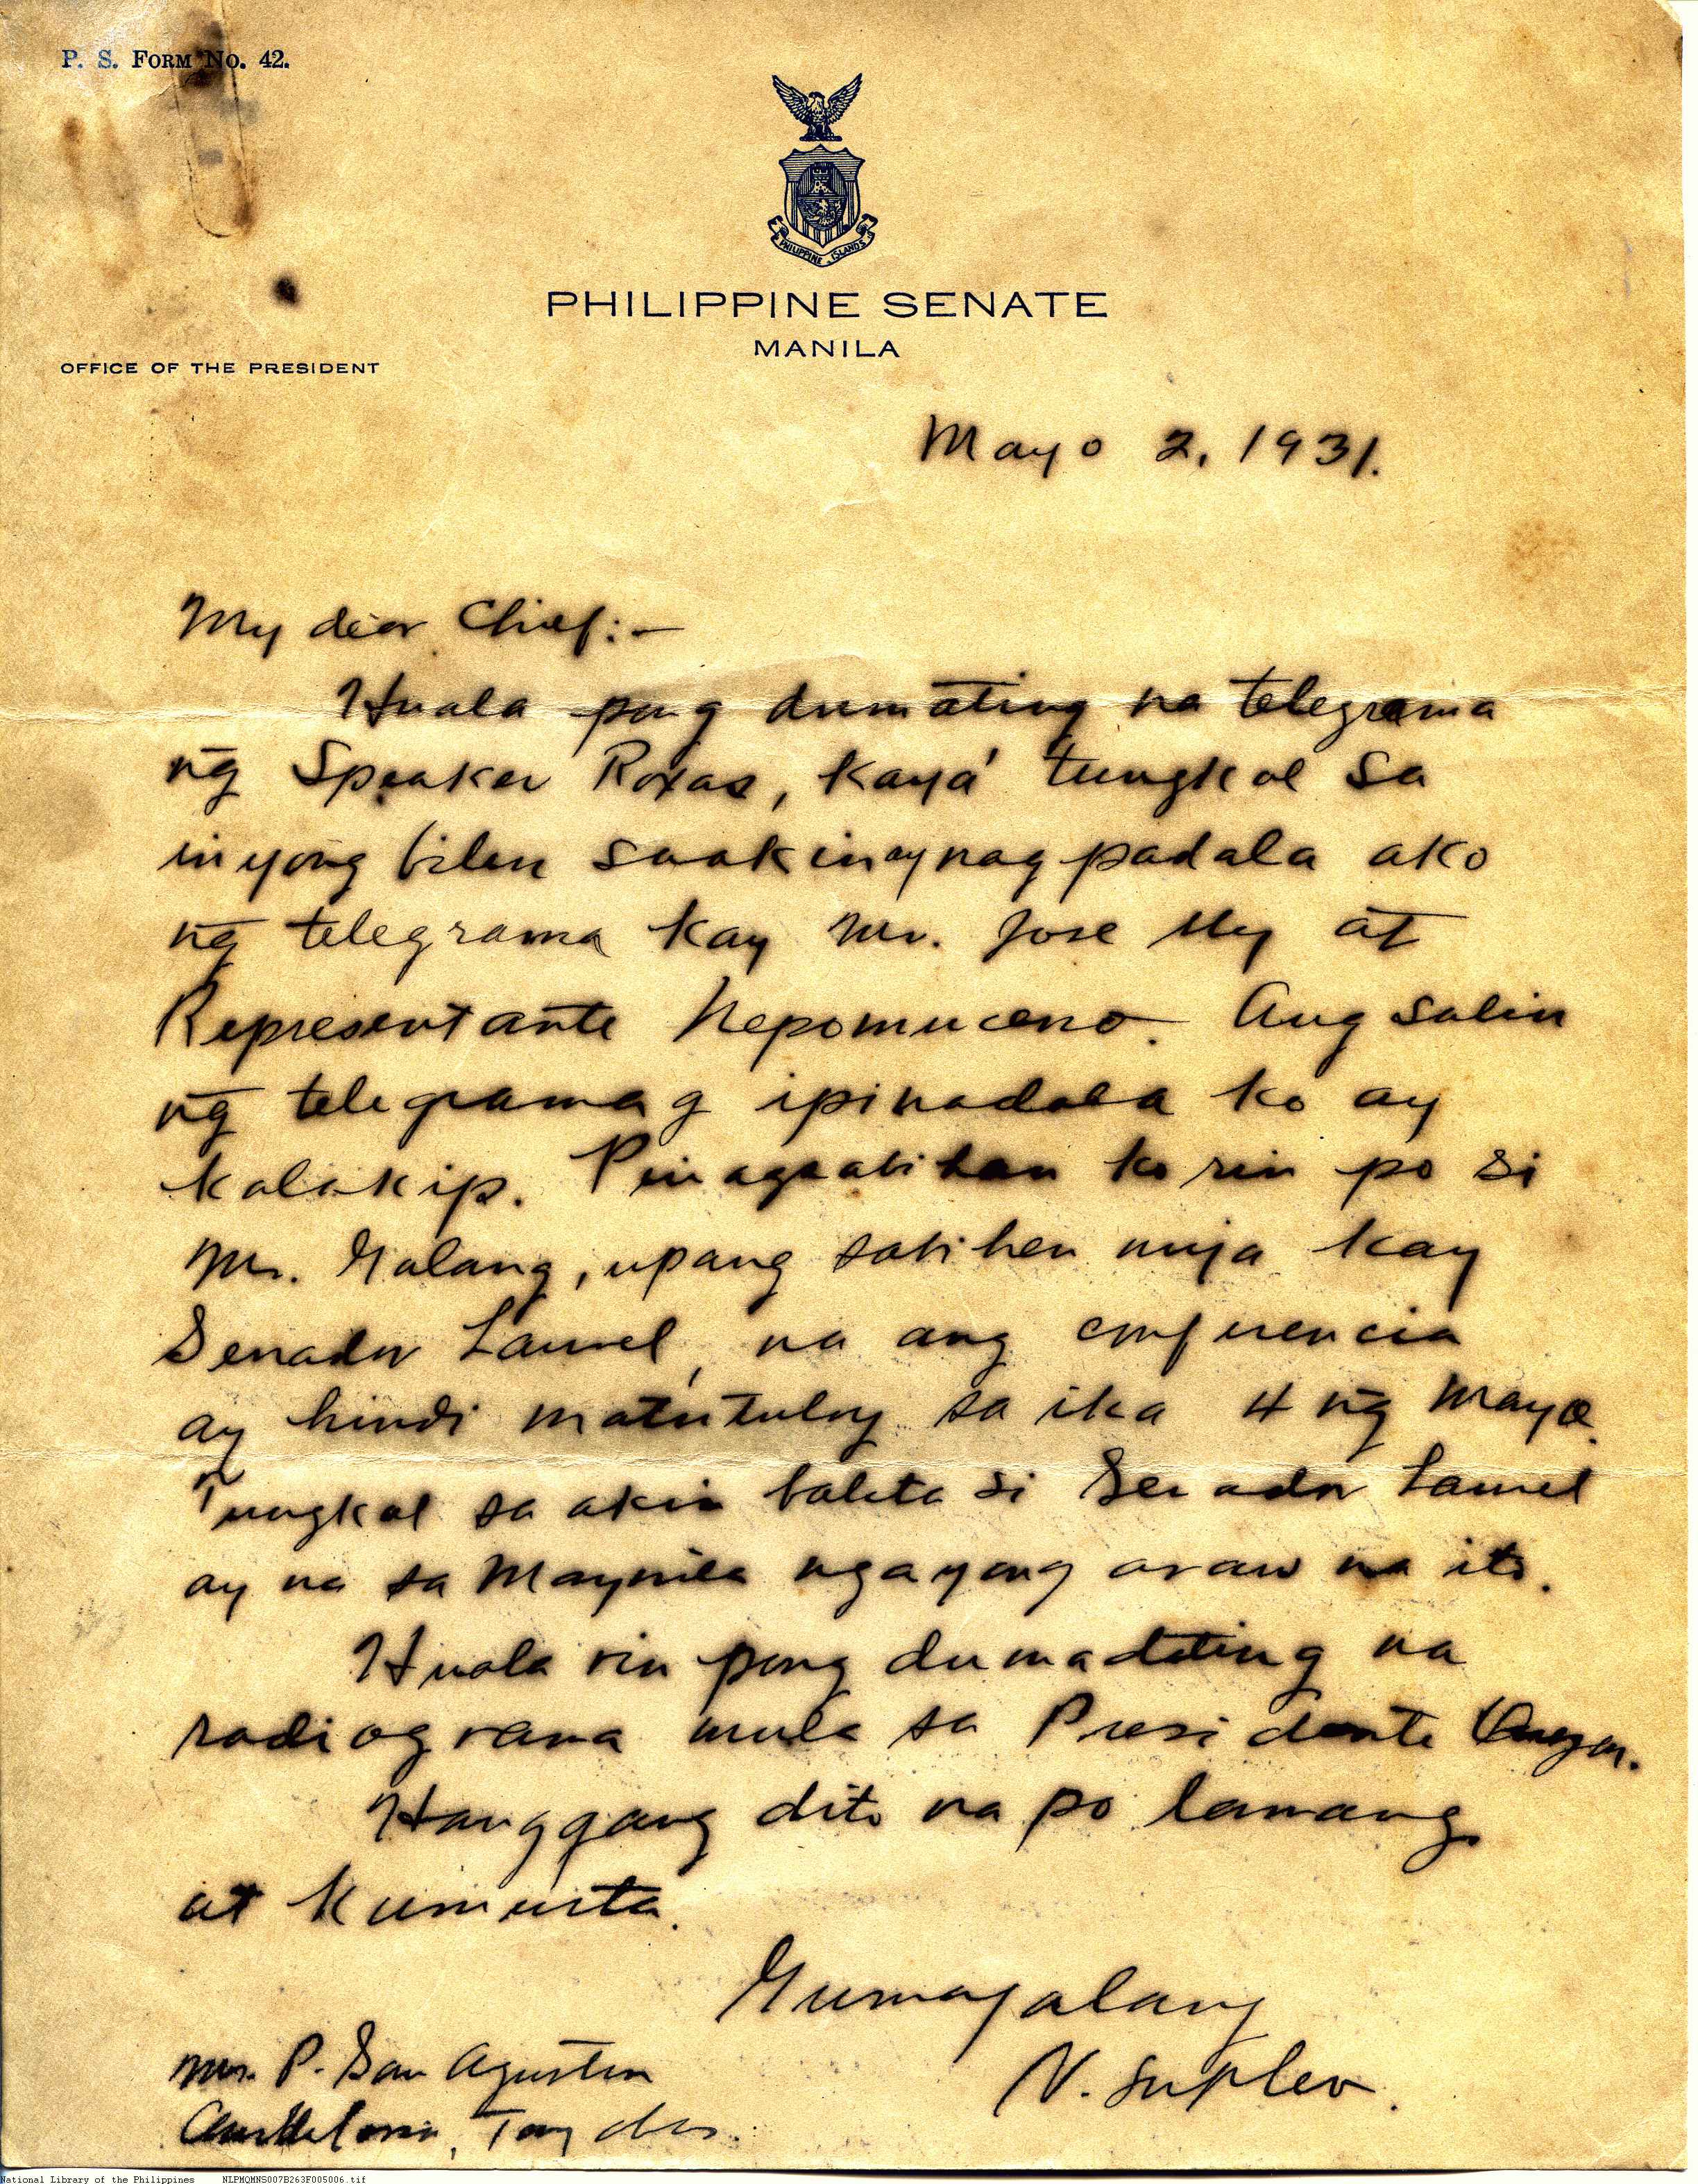 P. S. FORM No. 42.
PHILIPPINE ISLANDS
PHILIPPINE SENATE
MANILA
OFFICE OF THE PRESIDENT
Mayo 2, 1931.
My dear Chief:-
Huala pong dumating na telegrama
ng̃ Speaker Roxas, kayá tungkol sa
inyong bilin saakin ay nagpadala ako
ng̃ telegrama kay Mr. Jose Uy at
Representante Nepomuceno. Ang salin
ng̃ telegramag ipinadala ko ay
kalakip. Pinagsabihan ko rin po si
Mr. Galang, upang sabihen niya kay
Senador Laurel, na ang conferencia
ay hindi matutuloy sa ika 4 ng̃ Mayo.
Tungkol sa akin balita si Senador Laurel
ay na sa Maynila ngayong araw na ito.
Huala rin pong dumadating na
radiograma mula sa Presidente Quezon.
Hanggang dito na po lamang
at kumusta.
Gumagalang
N. Supleo.
Mr. P. San Agustin
Tayabas.
National Library of the Philippines NLPMQMNS007B263F005006.tif